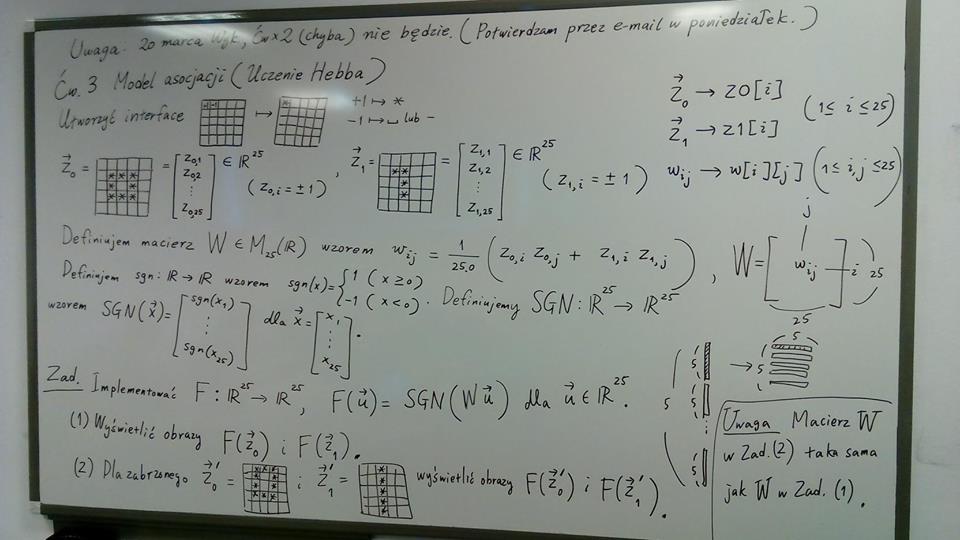 Uwaga. 20 marca Wyk, Ćw×2 (chyba) nie będzie. (Potwierdzam przez e-mail w poniedziałek.)
Ćw. 3 Model asocjacji (Uczenie Hebba)
Utworzyć interface ↦ +1 ↦ *
-1 ↦ ␣ lub -
Z⃗₀ → Z0[i]
Z⃗₁ → Z1[i] (1≤ i ≤25)
w_ij → w[i][j] (1≤ i,j ≤25)
Z⃗₀ = = [Z₀,₁ Z₀,₂ ⋮ Z₀,₂₅] ∈ ℝ²⁵ (Z₀,ᵢ = ±1) , Z⃗₁ = = [Z₁,₁ Z₁,₂ ⋮ Z₁,₂₅] ∈ ℝ²⁵ (Z₁,ᵢ = ±1)
Definiujem macierz W ∈ M₂₅(ℝ) wzorem w_ij = 1/25.0 (Z₀,ᵢ Z₀,ⱼ + Z₁,ᵢ Z₁,ⱼ) , W = [w_ij] j i 25 25
Definiujem sgn : ℝ → ℝ wzorem sgn(x) = { 1 (x ≥ 0) -1 (x < 0) . Definiujemy SGN : ℝ²⁵ → ℝ²⁵
wzorem SGN(x⃗) = [sgn(x₁) ⋮ sgn(x₂₅)] dla x⃗ = [x₁ ⋮ x₂₅] .
5 5 5 5 → 5 5
Zad. Implementować F : ℝ²⁵ → ℝ²⁵, F(u⃗) = SGN(W u⃗) dla u⃗ ∈ ℝ²⁵.
(1) Wyświetlić obrazy F(z⃗₀) i F(z⃗₁).
(2) Dla zabrzanego Z⃗₀' = i Z⃗₁' = wyświetlić obrazy F(z⃗₀') i F(z⃗₁').
Uwaga Macierz W
w Zad.(2) taka sama
jak W w Zad. (1).